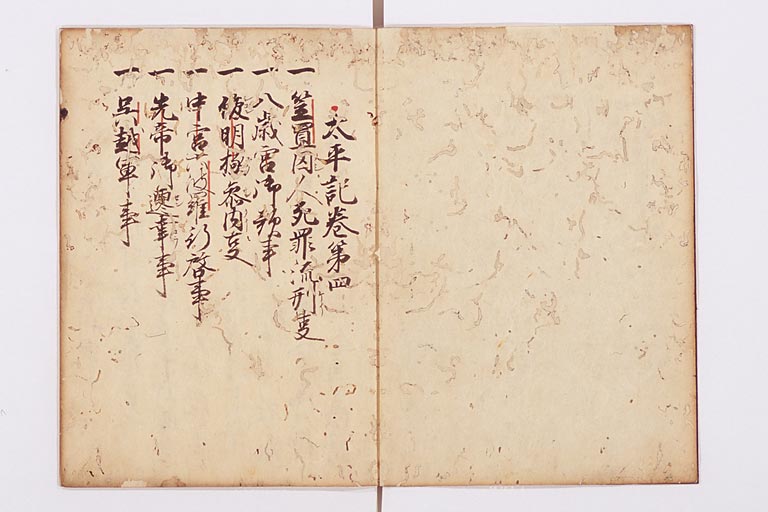 太平記巻第四
一 笠置囚人死罪流刑事
一 八歳宮御歌事
一 俊明極参内事
一 中宮六波羅行啓事
一 先帝御遷幸事
一 呉越軍事